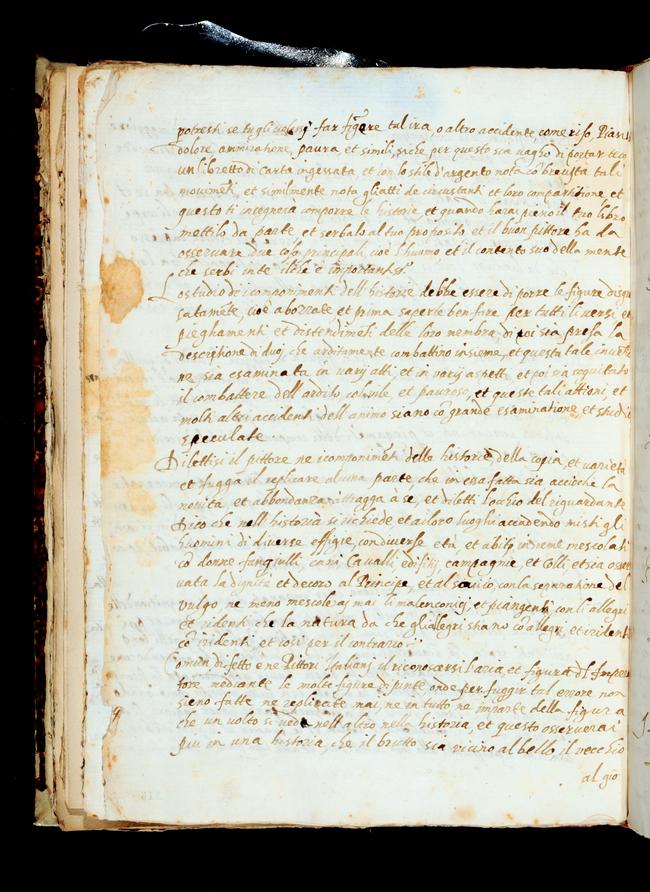 potresti se tu gli volessi far fig.re tal ira, o altro accidente, come riso, Pianto
dolore, ammiratione, paura et simili, siche per questo sia vagho di portar teco
un libretto di carta ingessata et con lo stile d'argento nota cō brevità tali
movimēti, et similmente nota gli atti de circustanti et loro compartitione et
questo ti insegnera comporre le historie et quando harai pieno il tuo libro
mettilo da parte et serbalo al tuo proposito et il buon pittore ha da
osservare due cose principali, cioè l'huomo et il contento suo della mente
che serbi in te il che è importantiss.º
Lo studio de i componimenti dell historie debbe essere di porre le figure disgro
satamēte, cioè abozzate et prima saperle ben fare per tutti li versi et
pieghamenti et distendimēti delle loro membra, di poi sia presa la
descriptione di duoj, che arditamente combattino insieme, et questa tale inventio
ne sia esaminata in varij atti, et in varij aspetti et poi sia seguitato
il combattere dell ardito col vile, et pauroso, et queste tali attioni, et
molti altri accidenti dell animo siano cō grande esaminatione et studio
speculate.
Dilettisi il pittore ne i componimēti delle historie della copia, et varietà
et fugga il replicare alcuna parte che in essa fatta sia accioche la
novità, et abbondanza attragga à se, et diletti l'ochio del riguardante
Dico che nell' historia si richiede et ai loro luoghi accadendo misti gli
huomini di diverse effigie, con diverse età, et abiti insieme mescolati
cō donne fanciulli, cani Cavalli edifitij campagnie, et colli, et sia osser
vata la dignità et decoro al Principe, et al savio, con la separatione del
vulgo ne meno mescolerai mai li malenconici, et piangenti con li allegri
et ridenti che la natura da che gli allegri stiano cō allegri, et i ridenti
cō i ridenti et così per il contrario.
Comun difetto è ne Pittori Italianj il riconoscersi l'aria, et figura dl Impera
tore mediante le molte figure dipinte onde per fuggir tal errore non
sieno fatte ne replicate mai, ne in tutto ne in parte delle figura
che un volto si veda nell altro nella historia, et questo osserverai
piu in una historia, che il brutto sia vicino al bello, il vecchio
al giō